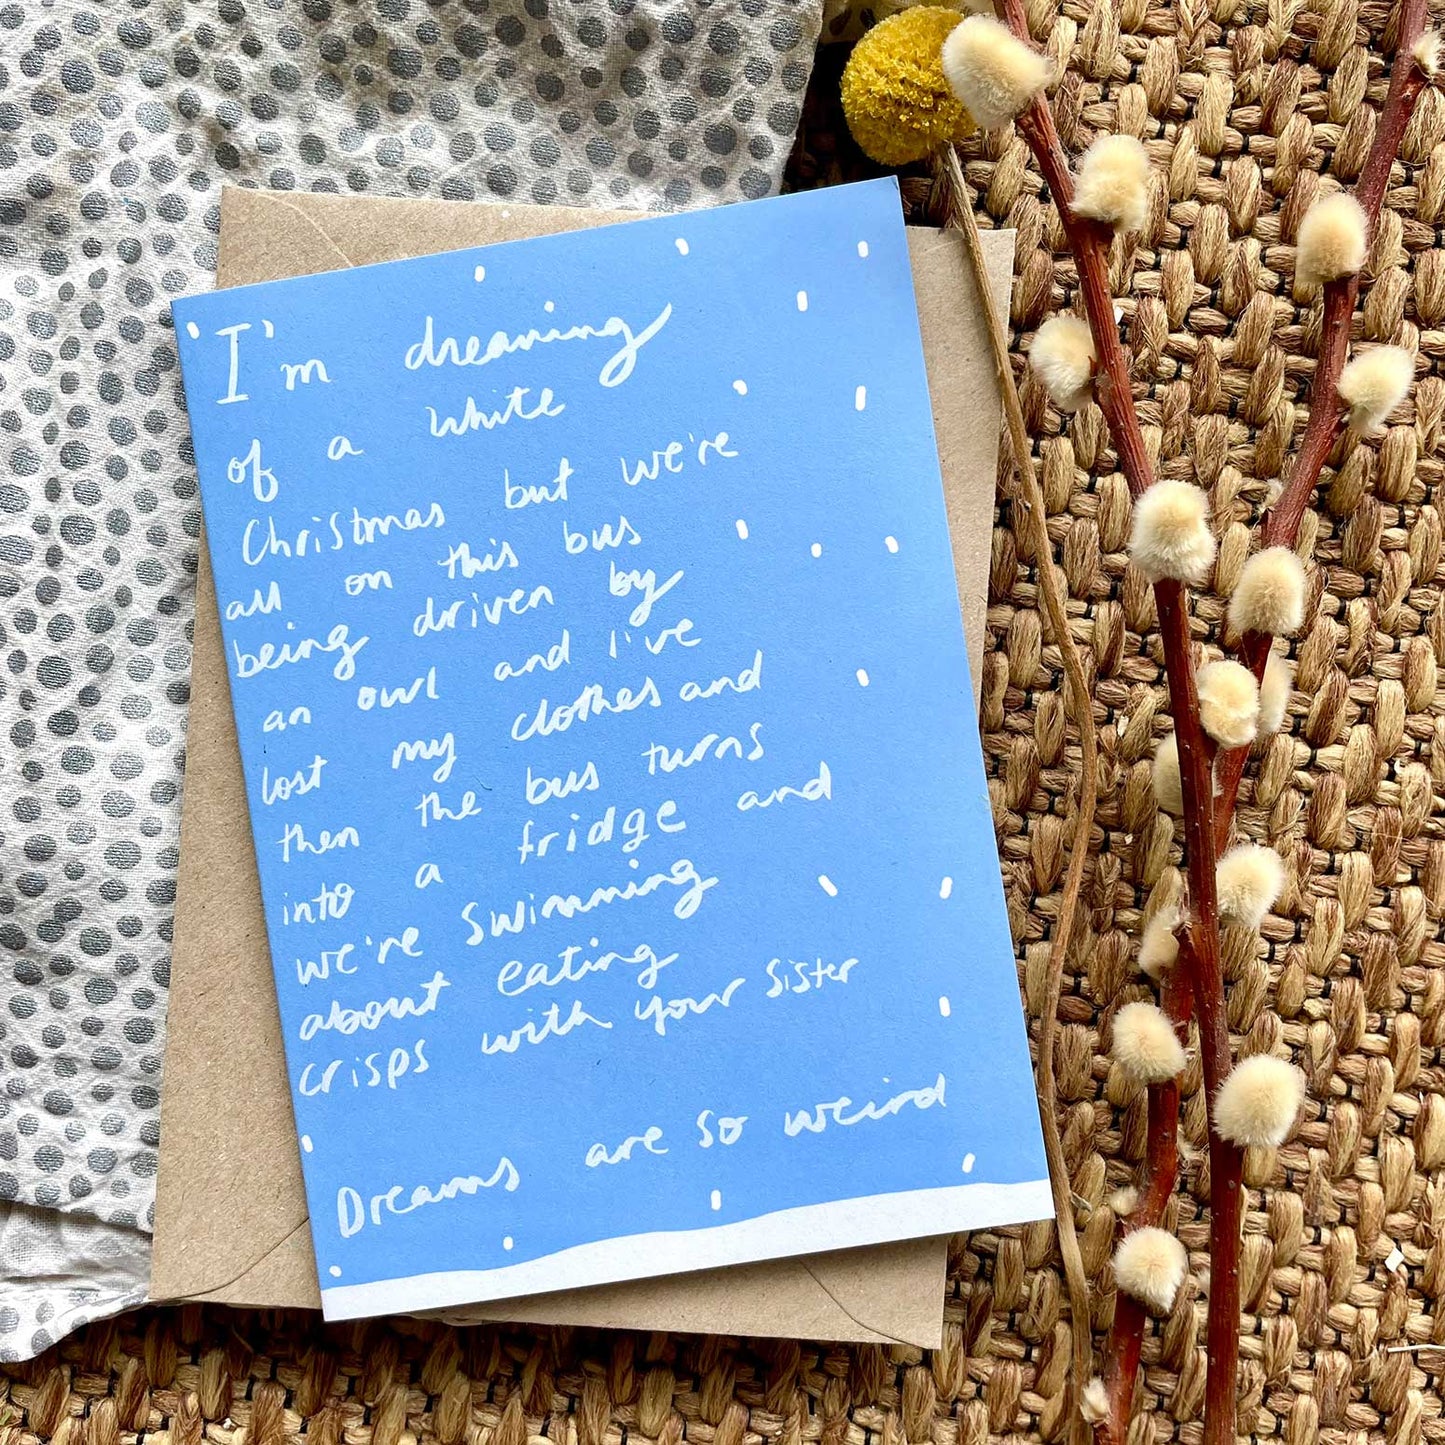 I'm dreaming
of a white
Christmas but we're
all on this bus
being driven by
an owl and i've
lost my clothes and
then the bus turns
into a fridge and
we're swimming
about eating
crisps with your sister
Dreams are so weird